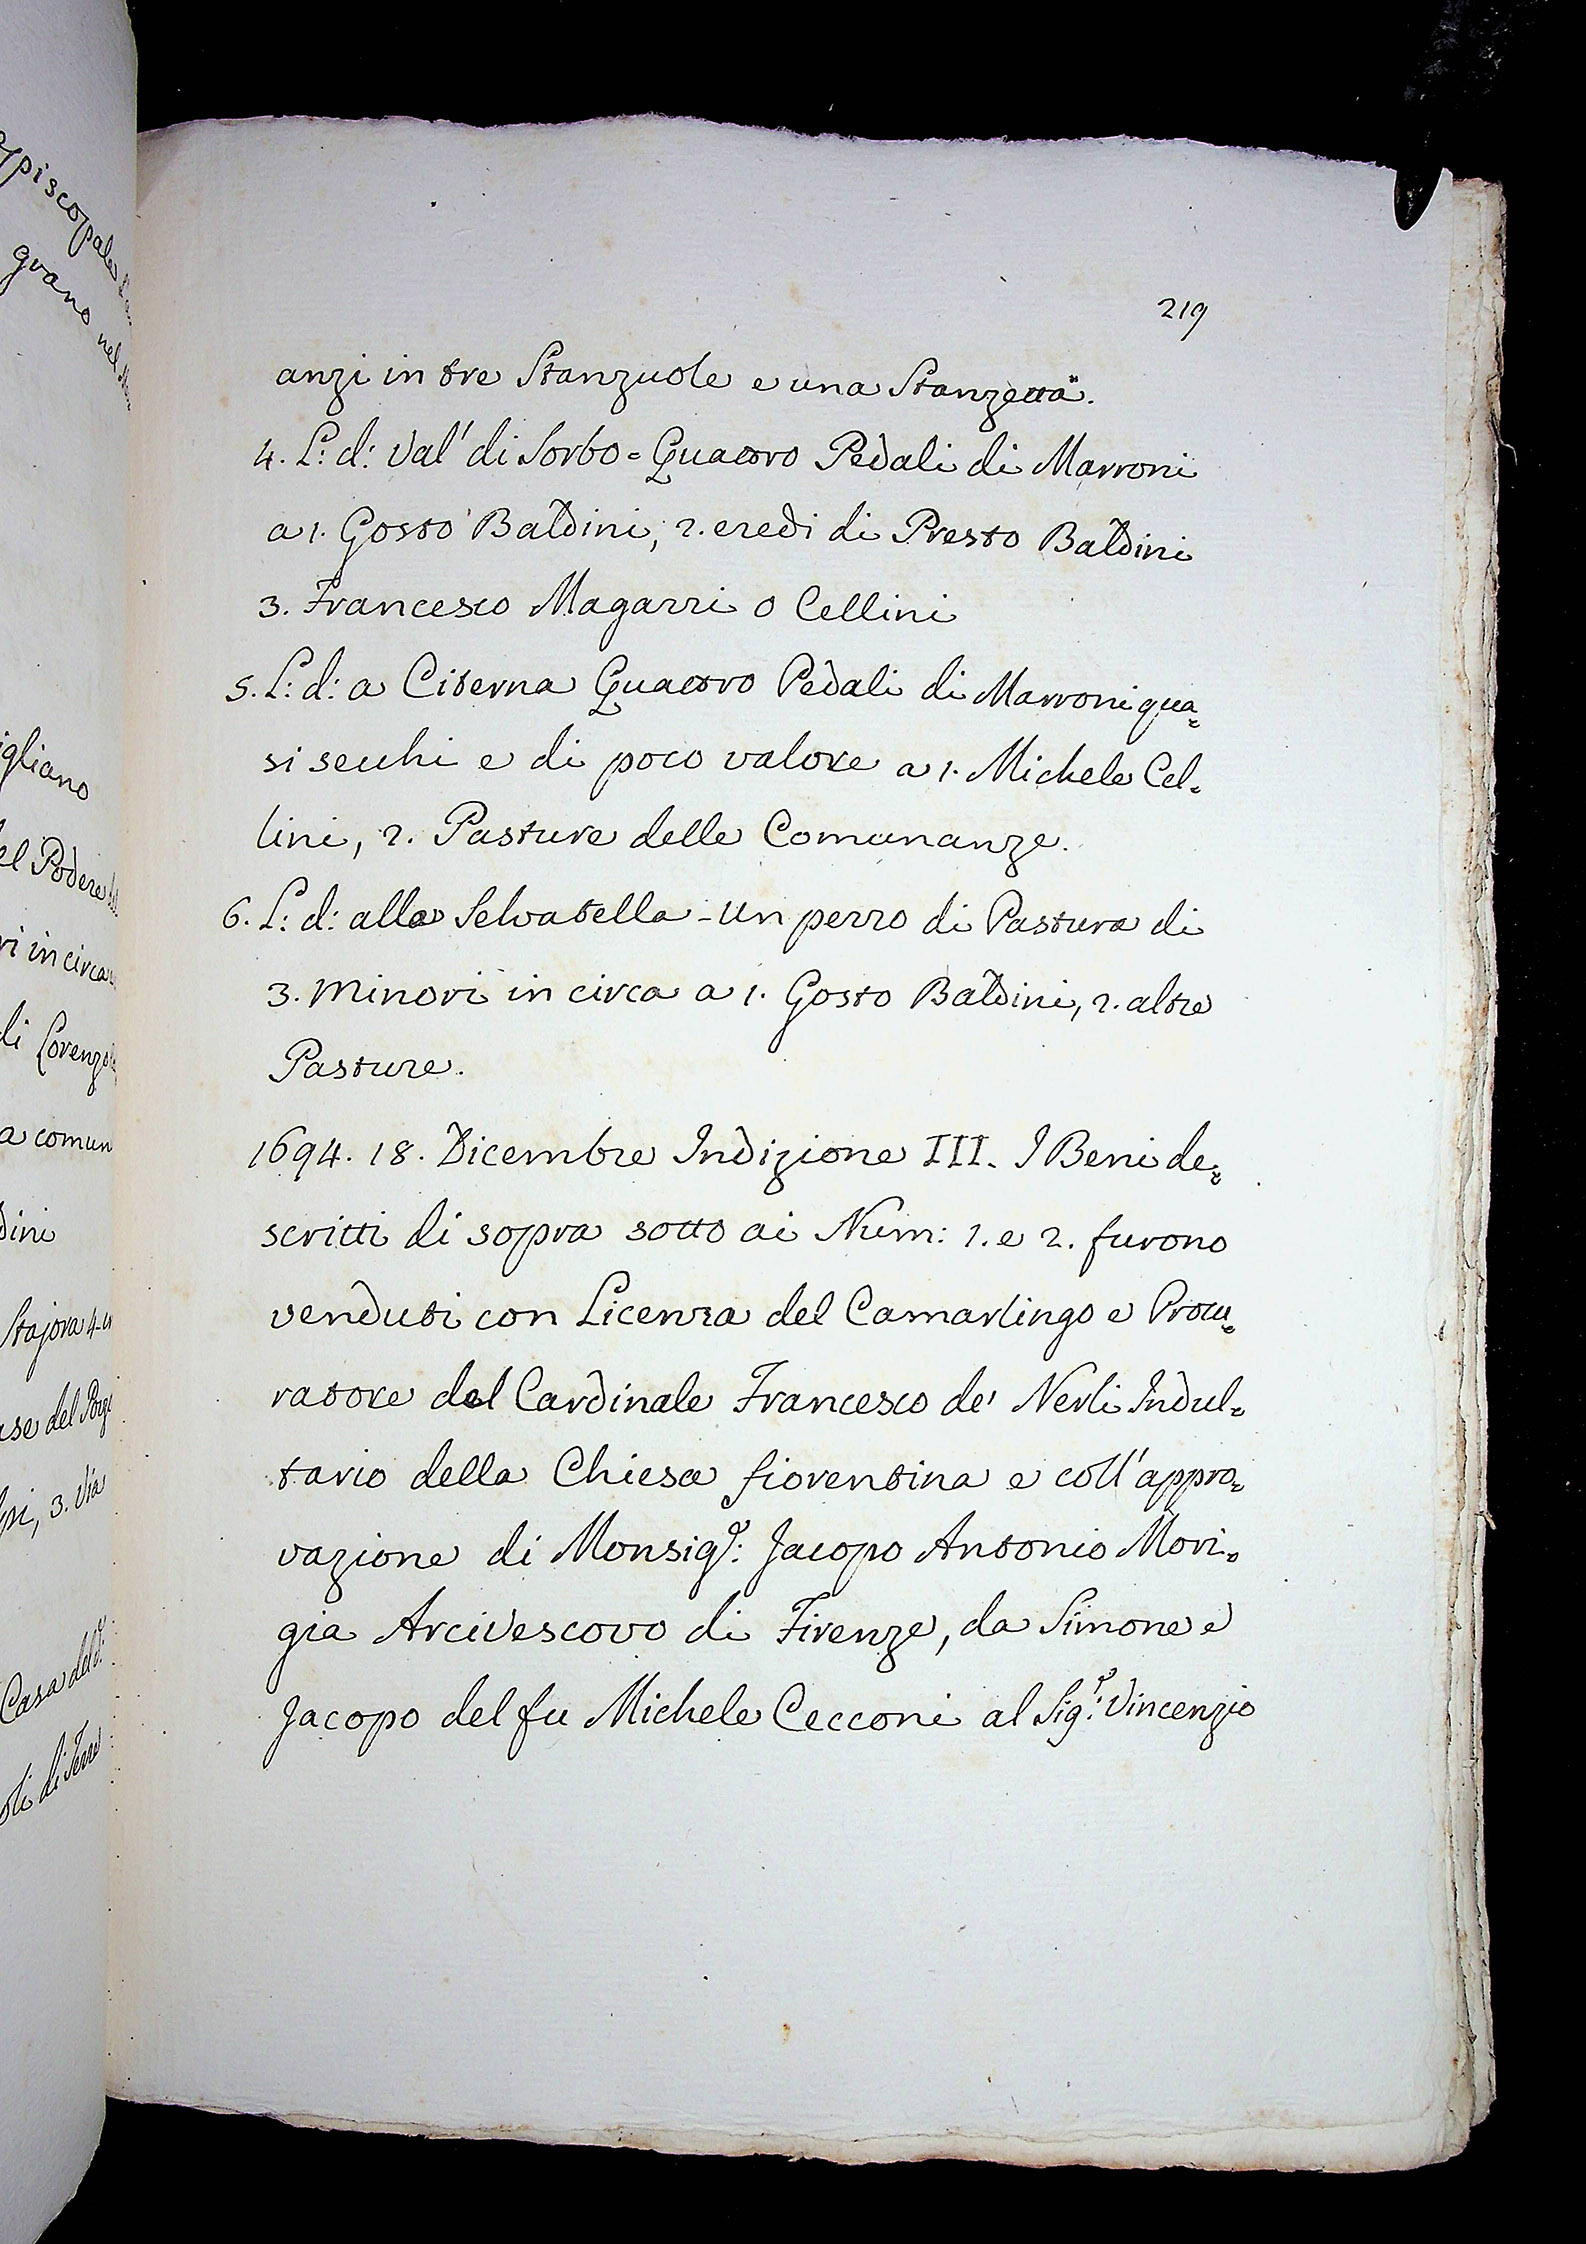 episcopale
grano nel
igliano
el Podere
ri in circa
di Lorenzo
a comun
dini
Stajora 4
ase del
pi, 3. Via
Casa del
oli di Terre
219
anzi in tre Stanzuole e una Stanzetta.
4. L: d: Val' di Sorbo = Quattro Pedali di Marroni
a 1. Gosto Baldini, 2. eredi di Presto Baldini
3. Francesco Magazzi o Cellini
5. L: d: a Citerna Quattro Pedali di Marroni qua=
si secchi e di poco valore a 1. Michele Cel=
lini, 2. Pasture delle Comunanze.
6. L: d: alla Selvatella - Un pezzo di Pastura di
3. Minori in circa a 1. Gosto Baldini, 2. altre
Pasture.
1694. 18. Dicembre Indizione III. I Beni de=
scritti di sopra sotto ai Num: 1. e 2. furono
venduti con Licenza del Camarlingo e Procu=
ratore del Cardinale Francesco de' Nerli Indul=
tario della Chiesa fiorentina e coll'appro=
vazione di Monsig.r: Jacopo Antonio Mori=
gia Arcivescovo di Firenze, da Simone e
Jacopo del fu Michele Cecconi al Sig.r: Vincenzio